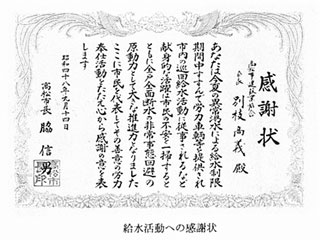 感謝状
会長 別枝尚義 殿
あなたは今夏の異常渇水による給水制限
期間中すすんで労力車輌等を提供され
市内の巡回給水活動に従事されるなど
献身的な活躍は市民の不安を一掃すると
ともに全戸全面断水の非常事態回避の
原動力として大きな推進力となりました
ここに市民を代表してその善意の労力
奉仕活動をたたえ心から感謝の意を表
します
昭和四十八年九月十四日
高松市長 脇 信男
給水活動への感謝状